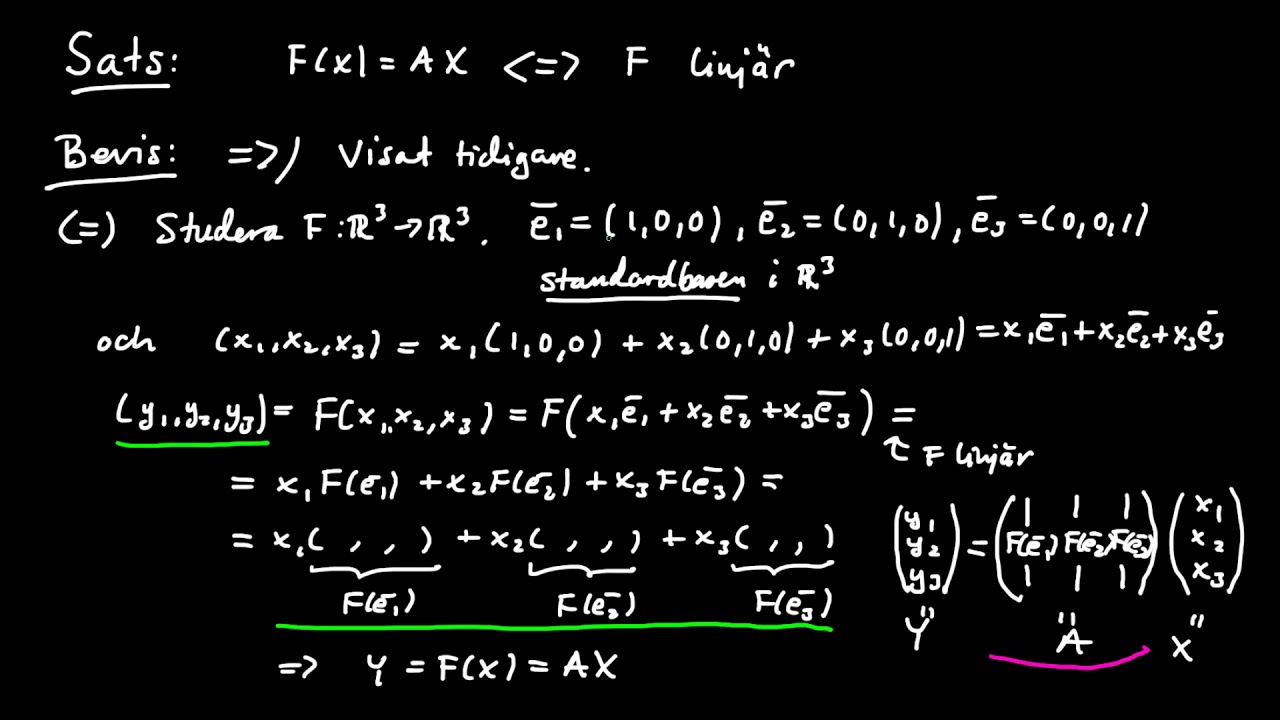 Sats: F(x) = AX <=> F linjär
Bevis: =>) Visat tidigare.
(<=) Studera F: ℝ³ → ℝ³. ē₁ = (1,0,0), ē₂ = (0,1,0), ē₃ = (0,0,1)
standardbasen i ℝ³
och (x₁,x₂,x₃) = x₁(1,0,0) + x₂(0,1,0) + x₃(0,0,1) = x₁ē₁ + x₂ē₂ + x₃ē₃
(y₁,y₂,y₃) = F(x₁,x₂,x₃) = F(x₁ē₁ + x₂ē₂ + x₃ē₃) =
↑ F linjär
= x₁F(ē₁) + x₂F(ē₂) + x₃F(ē₃) =
= x₁( , , ) + x₂( , , ) + x₃( , , )
F(ē₁) F(ē₂) F(ē₃)
=> Y = F(X) = AX
( y₁ ) ( | | | ) ( x₁ )
( y₂ ) = ( F(ē₁) F(ē₂) F(ē₃) ) ( x₂ )
( y₃ ) ( | | | ) ( x₃ )
" " "
Y A X